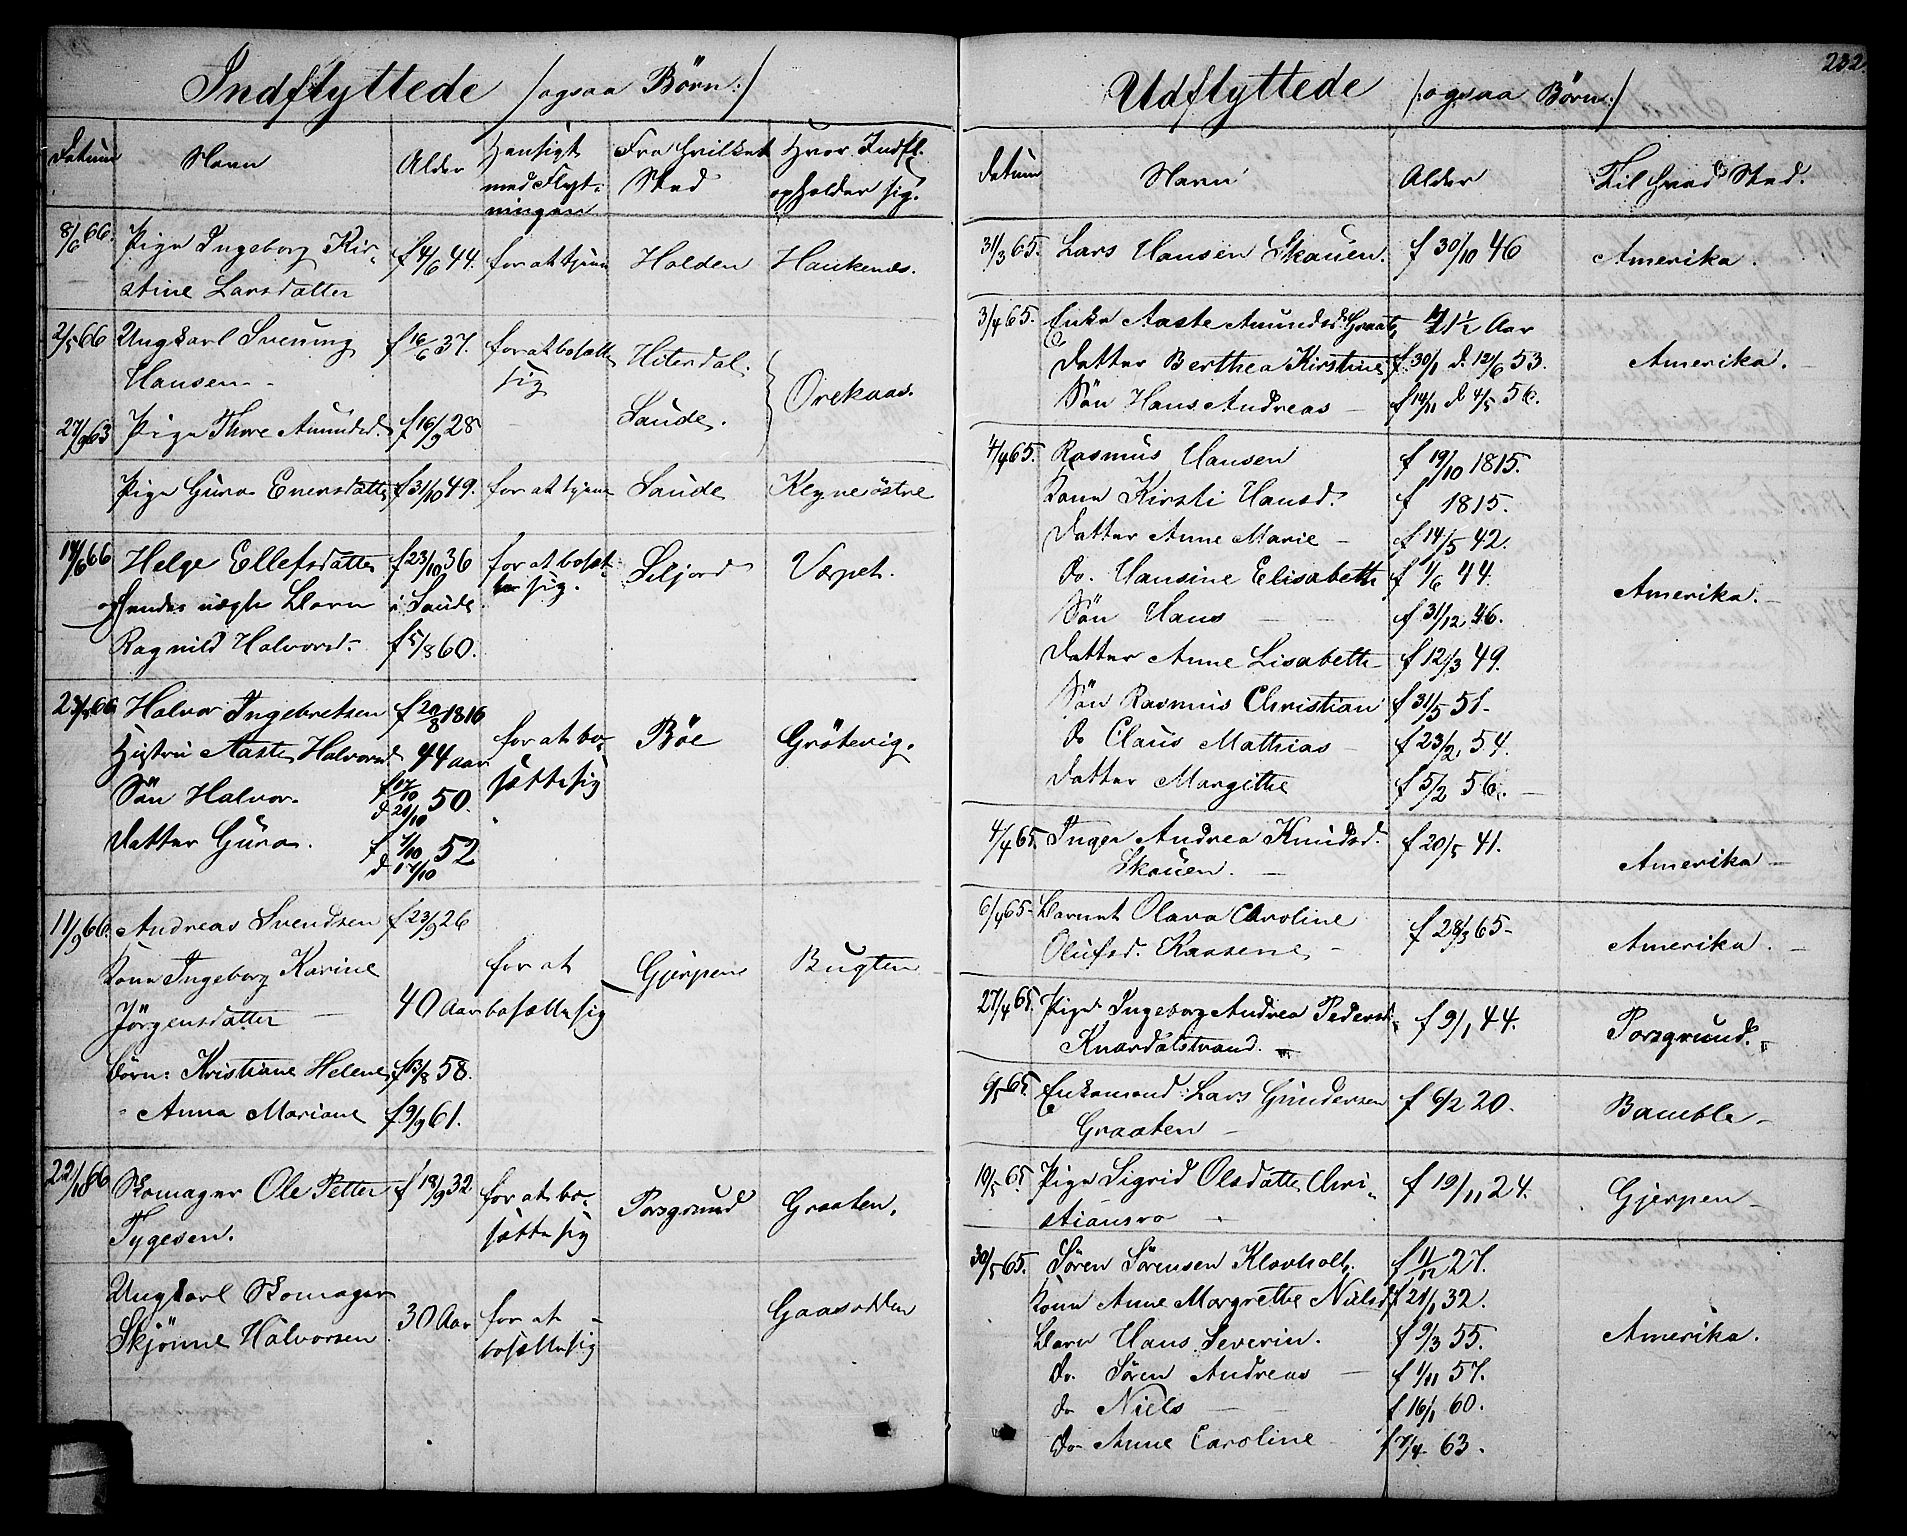 Indflyttede /ogsaa Börn:/
Datum Navn Alder Hensigt med Flyt-ningen Fra hvilket Sted Hvor Indfl. opholder sig.
8/6 66. Pige Ingeborg Kir- f 4/6 44. for at tjene Holden Haukenes.
stine Larsdatter
2/5 66 Ungkarl Svenung f 16/6 37. for at bosætte Hiterdal.
Hansen - sig Orekaas.
27/9 63 Pige Thore Amundsd. f 16/9 28 Saude.
Pige Guro Enersdatter f 31/10 49. for at tjene Saude Kleyve östre
14/6 66 Helge Ellefsdatter f 23/10 36 for at bosæt- Siljord Værpet.
og hendes uægte Barn i Saude te sig.
Ragnild Halvorsd. f 5/8 60.
23/ 66 Halvor Ingebretsen f 20/8 1816 for at bo- Böe Grötevig.
Hustru Aaste Halvorsd 44 aar sætte sig
Sön Halvor. f 17/10 d 21/10 50.
Datter Guro. f 1/10 d 17/10 52
11/9 66. Andreas Svendsen f 23/9 26
Kone Ingeborg Karine for at Gjerpen Bugten
Jörgensdatter - 40 Aar bosætte sig
Börn: Kristiane Helene f 13/8 58.
" Anna Mariane f 9/9 61.
22/10 66 Skomager Ole Petter f 18/9 32. for at bo- Porsgrund Graaten.
Tygesen. sætte sig
Ungkarl Skomager 30 Aar for at - Gaasodden
Skjönne Halvorsen bosætte sig
232.
Udflyttede /:ogsaa Börn:/
Datum Navn Alder Til hvad Sted.
31/3 65. Lars Hansen Skauen. f 30/10 46 Amerika.
3/4 65. Enke Aaste Amundsd. Graaten 41 1/2 Aar
Datter Berthea Kirstine f. 30/1 d. 12/6 53. Amerika.
Sön Hans Andreas - f 14/11 d 4/5 56.
4/4 65. Rasmus Hansen f 19/10 1815.
Kone Kirsti Hansd. f 1815.
Datter Anne Marie - f 14/5 42.
Do. Hansine Elisabeth f 1/6 44.
Sön Hans - f 31/12 46. Amerika.-
Datter Anne Lisabeth f 12/3 49.
Sön Rasmus Christian f 31/5 51-
Do Claus Mathias - f 23/2 54.
Datter Margithe f 5/2 56. -
4/4 65. Inger Andrea Knudsd. f 20/5 41. Amerika -
Skauen. -
6/4 65- Barnet Olava Caroline f 28/3 65- Amerika. -
Olufsd. Kaasene -
27/4 65. Pige Ingeborg Andrea Pedersd. f 9/1 44. Porsgrund.
Knardalstrand.
6/5 65. Enkemand: Lars Gundersen f 6/2 20. Bamble -
Graaten -
10/5 65. Pige Sigrid Olsdatter Chri- f 19/11 24. Gjerpen -
stiansro
30/5 65. Sören Sörensen Klovholt. f 11/12 27.
Kone Anne Margrethe Nielsd. f 21/1 32.
Barn Hans Severin. f 9/3 55. Amerika.
Do. Sören Andreas - f 1/11 57.
do Niels - f 16/1 60.
Do Anne Caroline f 7/4 63.